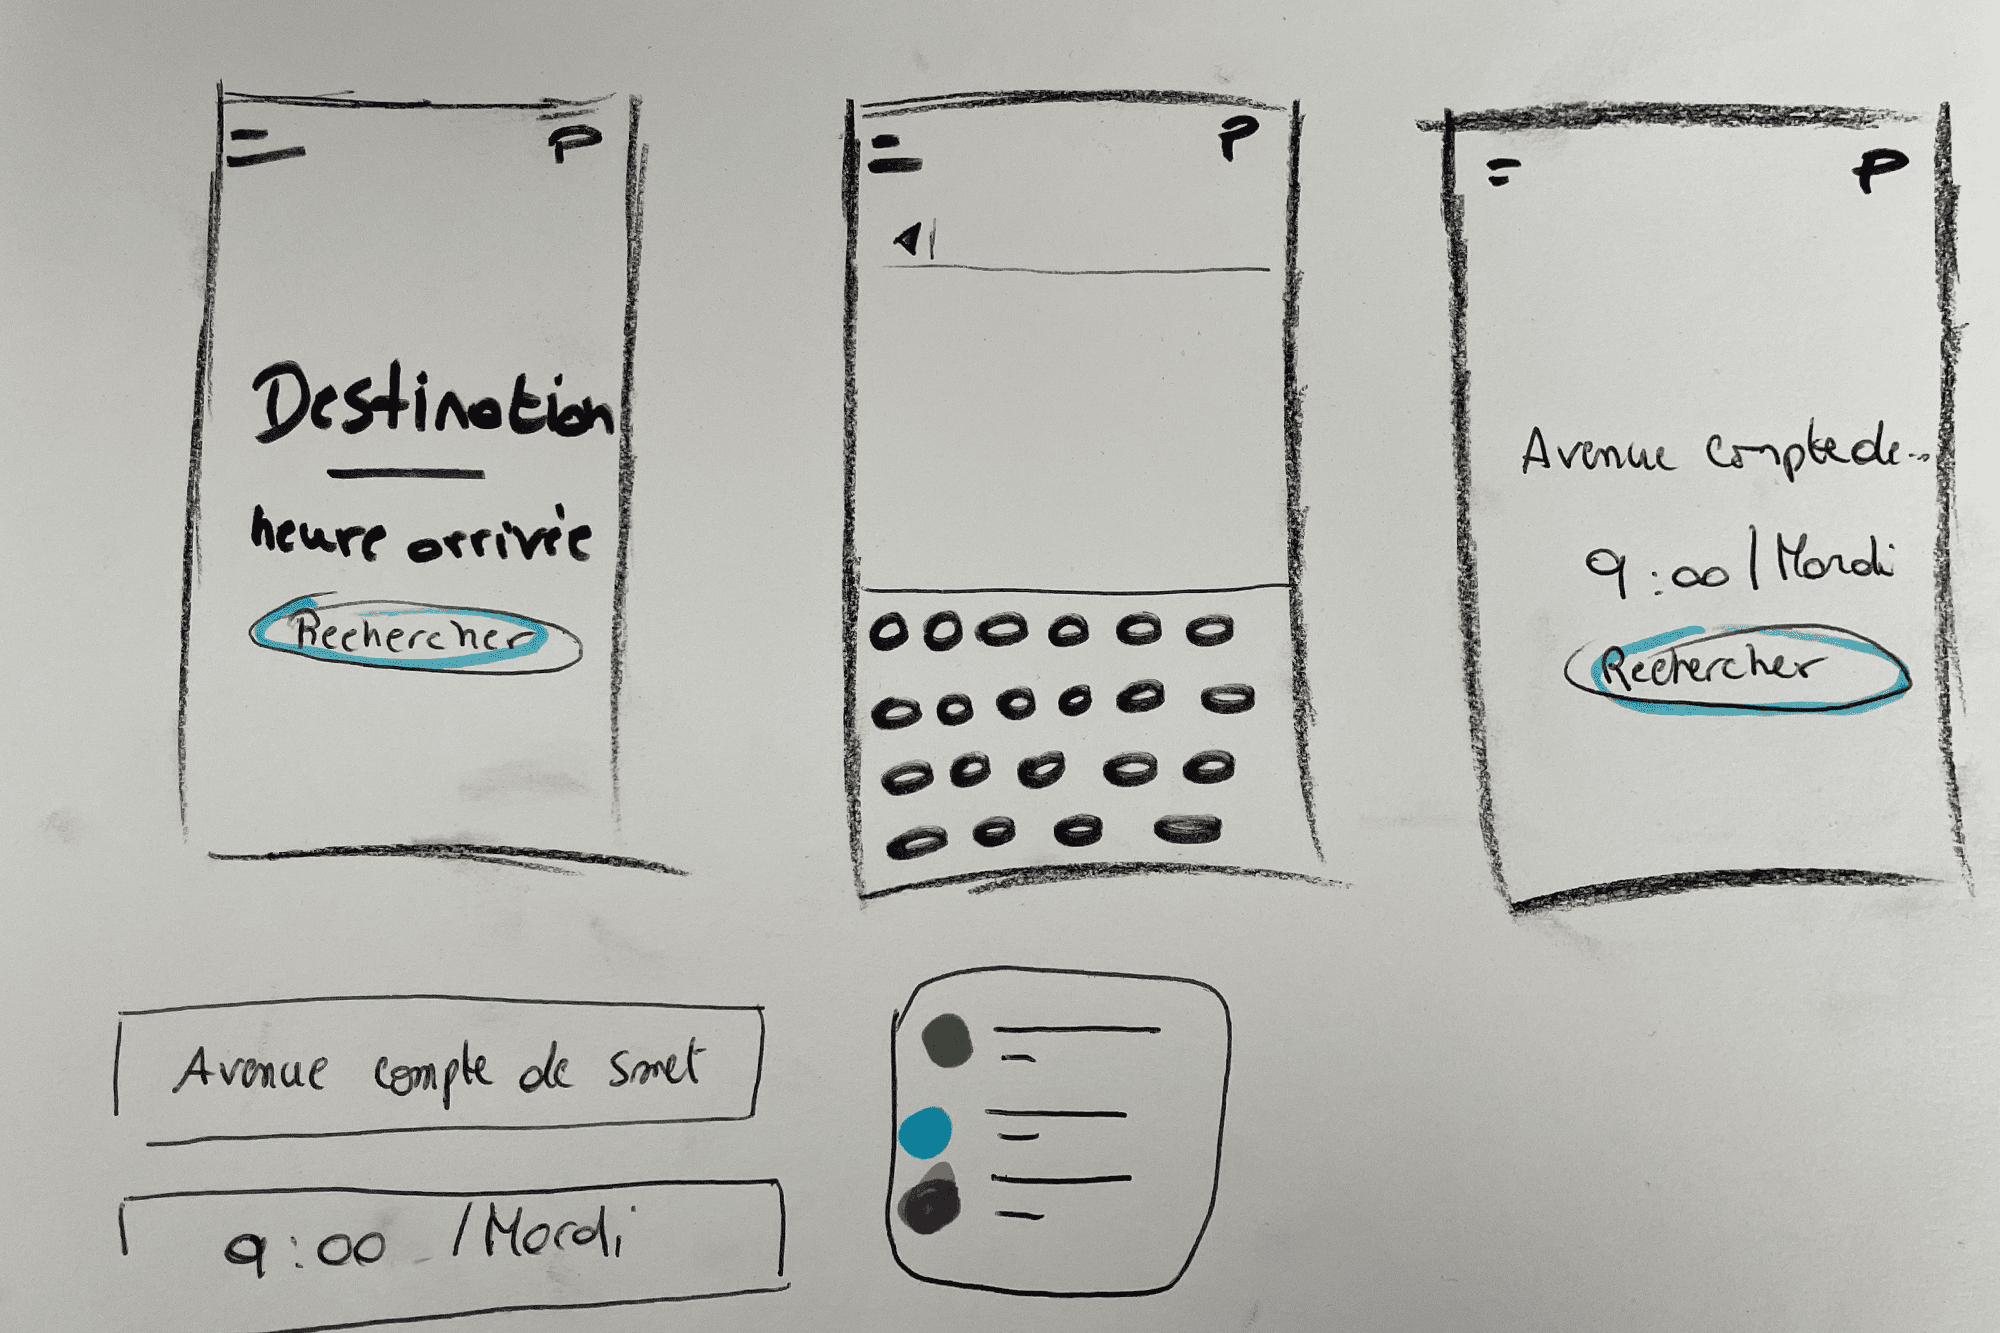 P
Destination
heure arrivée
Rechercher
P
P
Avenue compte de...
9:00 / Mardi
Rechercher
Avenue compte de smet
9:00 / Mardi